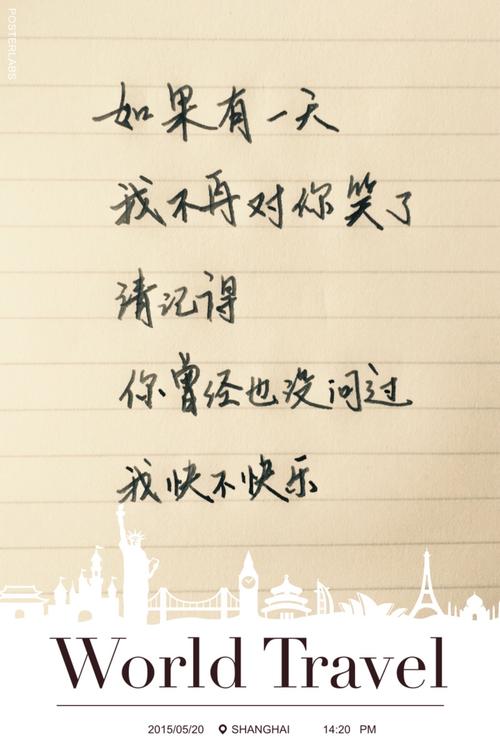 POSTERLABS
如果有一天
我不再对你笑了
请记得
你曾经也没问过
我快不快乐
World Travel
2015/05/20 SHANGHAI 14:20 PM